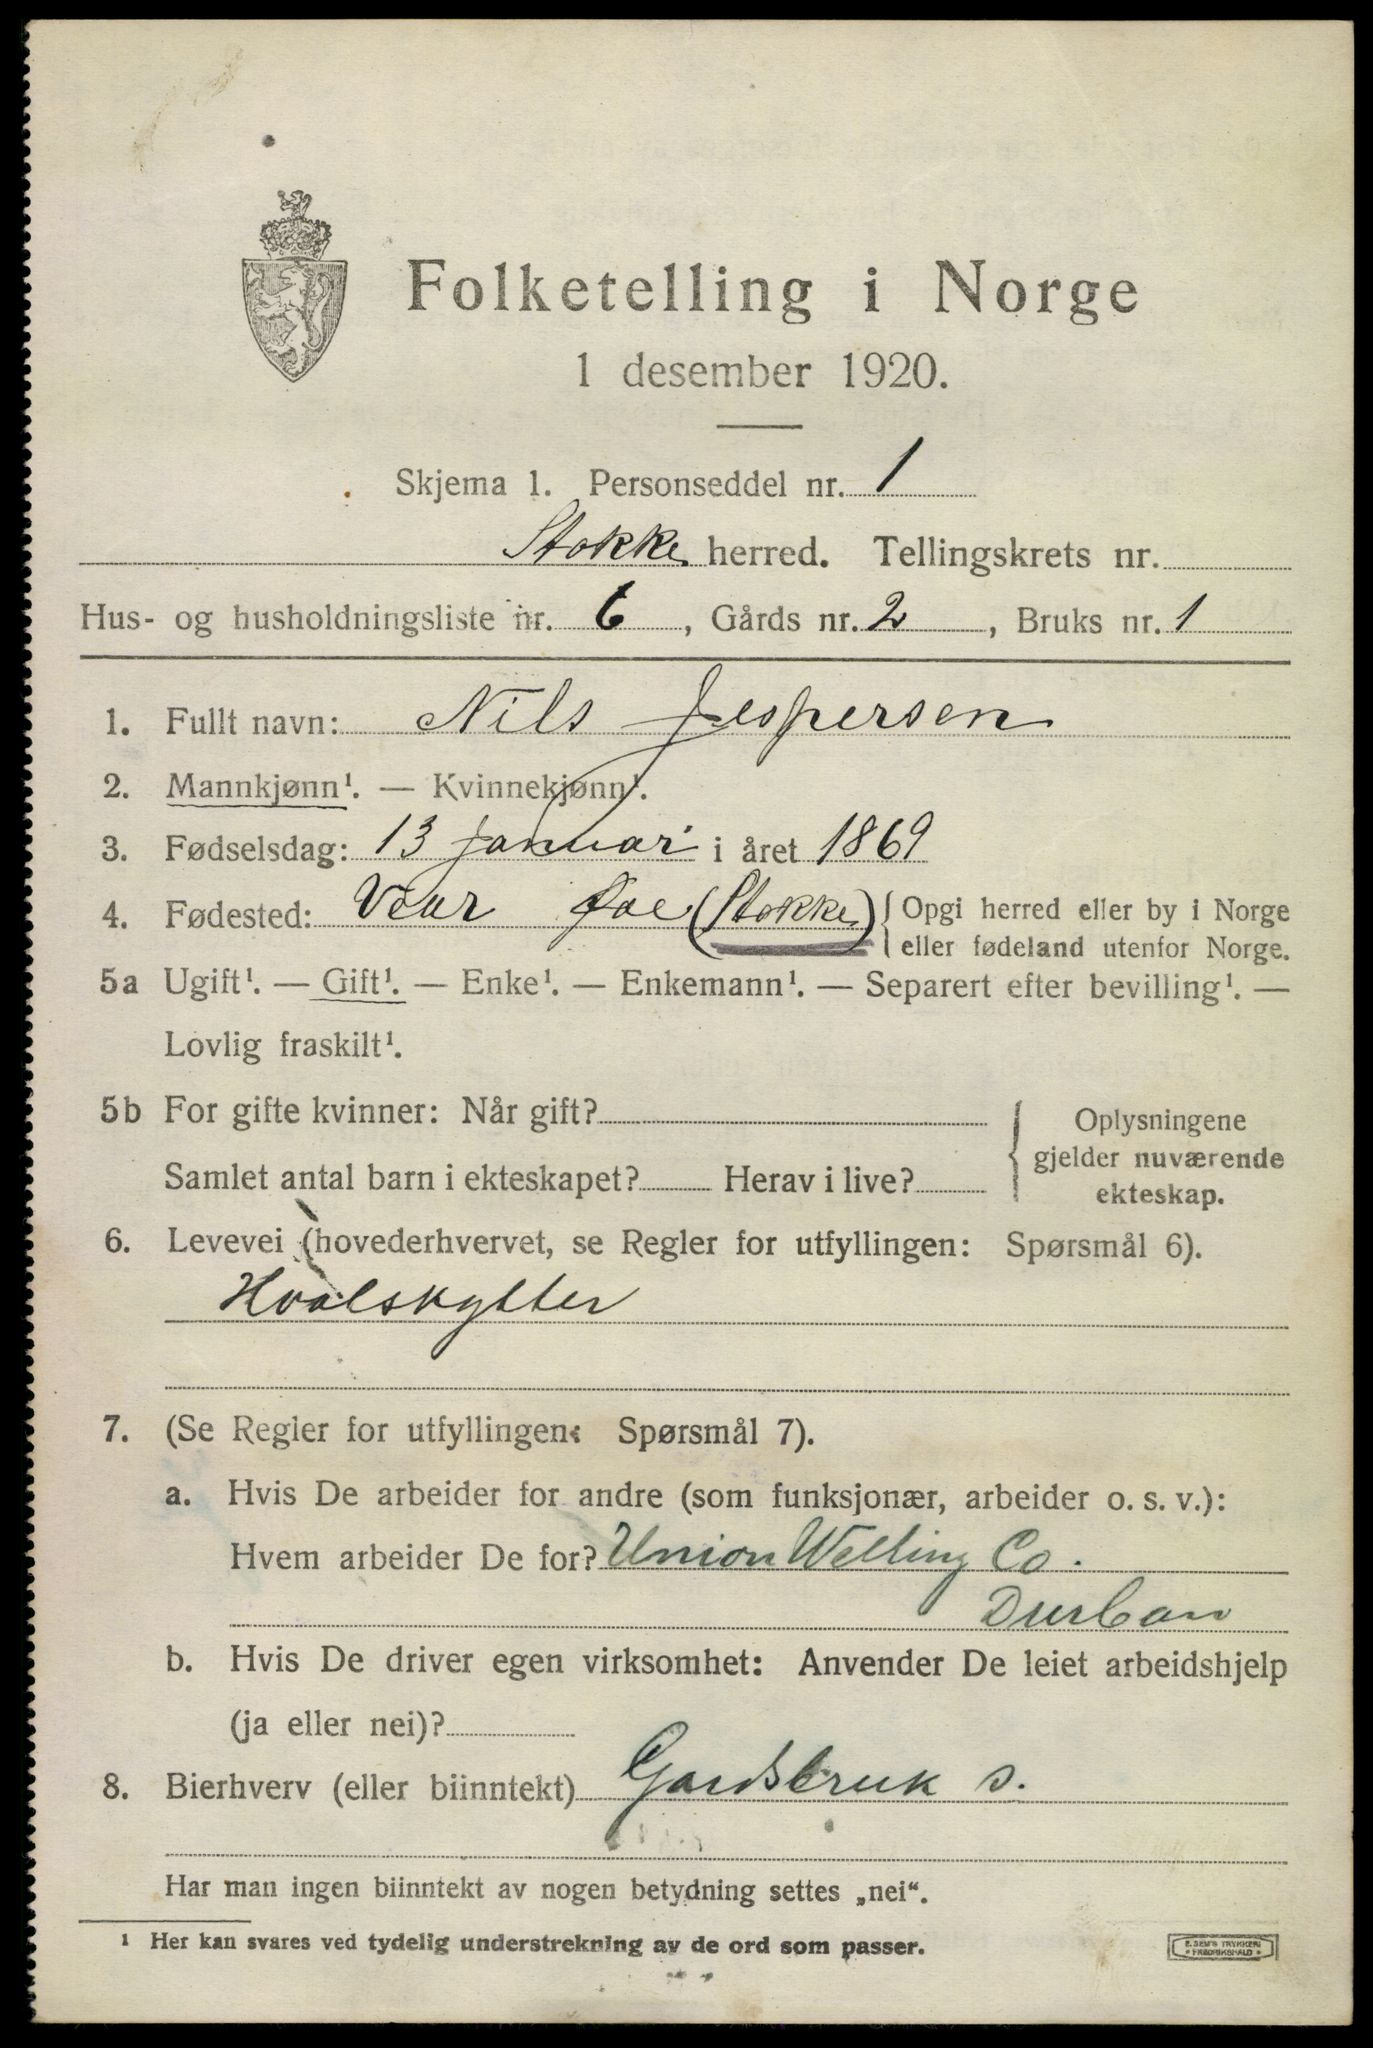 Folketelling i Norge
1 desember 1920.
Skjema 1. Personseddel nr. 1
Stokke herred. Tellingskrets nr.
Hus- og husholdningsliste nr. 6, Gårds nr. 2, Bruks nr. 1
1. Fullt navn: Nils Jespersen
2. Mannkjønn¹. — Kvinnekjønn¹.
3. Fødselsdag: 13 januar i året 1869
4. Fødested: Vear (Stokke) Opgi herred eller by i Norge
eller fødeland utenfor Norge.
5a Ugift¹. — Gift¹. — Enke¹. — Enkemann¹. — Separert efter bevilling¹. —
Lovlig fraskilt¹.
5b For gifte kvinner: Når gift?
Samlet antal barn i ekteskapet? Herav i live?
Oplysningene
gjelder nuværende
ekteskap.
6. Levevei (hovederhvervet, se Regler for utfyllingen: Spørsmål 6).
Hvalskytter
7. (Se Regler for utfyllingen: Spørsmål 7).
a. Hvis De arbeider for andre (som funksjonær, arbeider o. s. v.):
Hvem arbeider De for? Union Welling Co.
Durban
b. Hvis De driver egen virksomhet: Anvender De leiet arbeidshjelp
(ja eller nei)?
8. Bierhverv (eller biinntekt) Gardsbruk s.
Har man ingen biinntekt av nogen betydning settes „nei“.
¹ Her kan svares ved tydelig understrekning av de ord som passer.
E. SEM'S TRYKKERI
FREDRIKSHALD